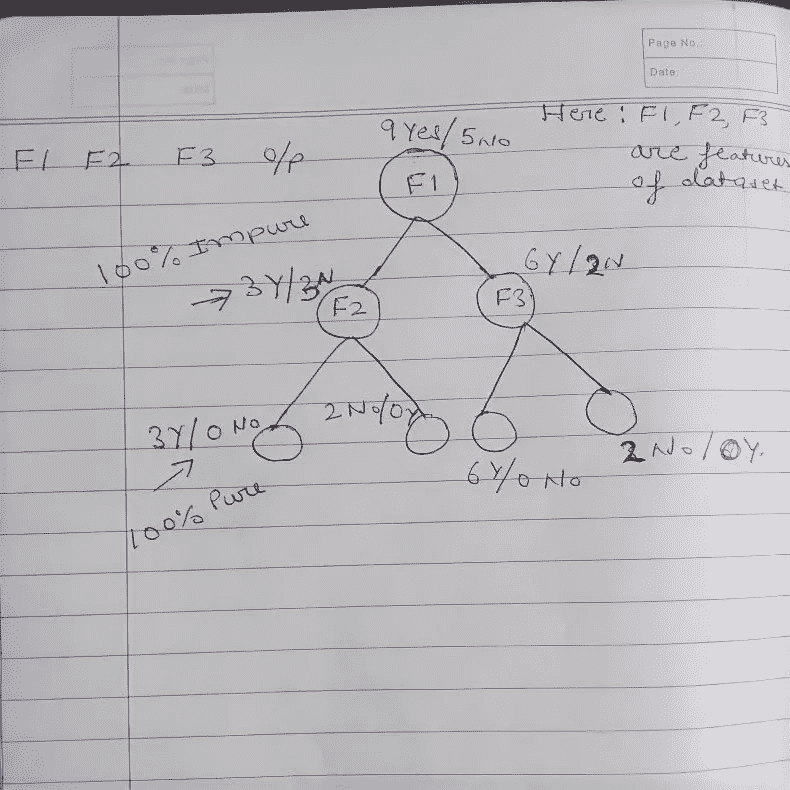 Page No.:
Date:
Here : F1, F2, F3
are features
of dataset
F1 F2 F3 o/p
9 Yes/5 No
F1
100% Impure
→ 3Y/3N
F2
6Y/2N
F3
3Y/0 No
2 No/0Y
6Y/0 No
2 No/0Y.
100% Pure